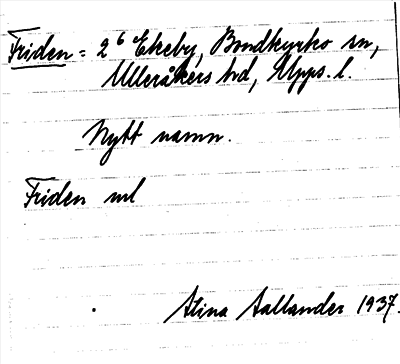 Friden = 2⁶ Ekeby, Bondkyrko sn,
Ulleråkers hd, Upps. l.
Nytt namn.
Friden ml
Stina Aallander 1937.